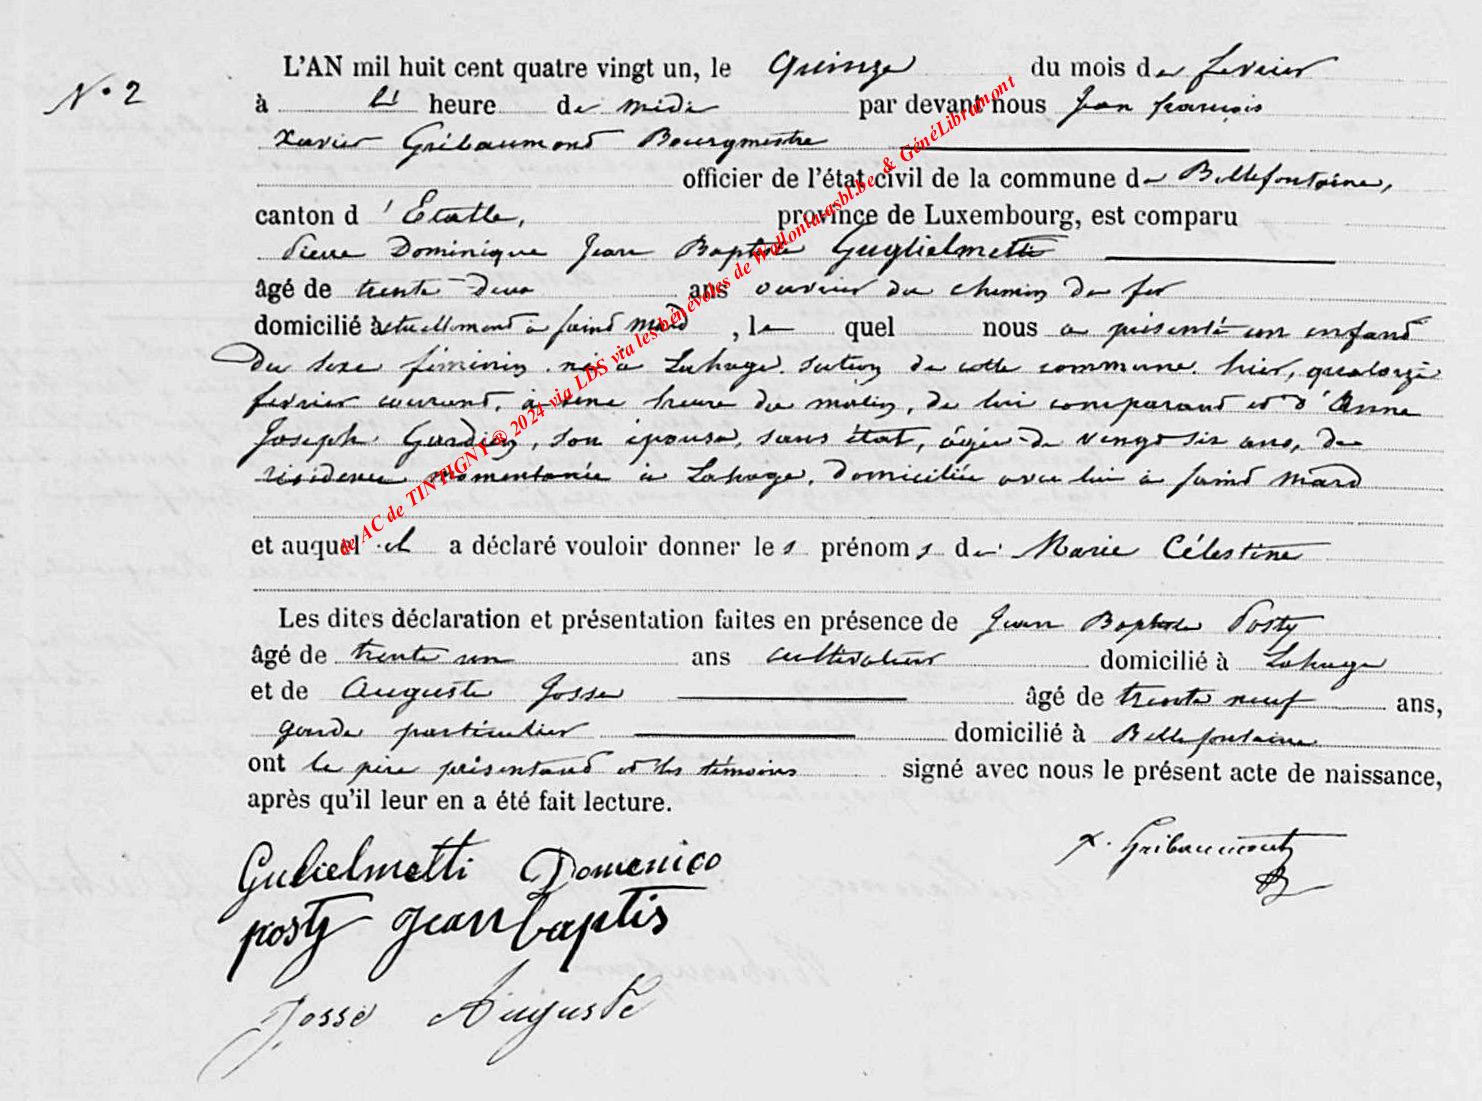 N° 2
L'AN mil huit cent quatre vingt un, le Quinze du mois de fevrier
à l' heure de midi par devant nous Jean françois
Xavier Gribaumont Bourgmestre
officier de l'état civil de la commune de Bellefontaine,
canton d'Etalle, province de Luxembourg, est comparu
Pierre Dominique Jean Baptiste Guglielmetti
âgé de trente-deux ans ouvrier du chemin de fer
domicilié actuellement à saint mard, le quel nous a présenté un enfant
du sexe féminin né à Lahage section de cette commune hier, quatorze
fevrier courant, à une heure du matin, de lui comparant et d'Anne
Joseph Gardien, son épouse, sans état, âgée de vingt six ans, de
résidence momentanée à Lahage, domiciliée avec lui à saint mard
et auquel il a déclaré vouloir donner les prénoms de Marie Célestine
Les dites déclaration et présentation faites en présence de Jean Baptiste Posty
âgé de trente un ans cultivateur domicilié à Lahage
et de Auguste Josse âgé de trente neuf ans,
garde particulier domicilié à Bellefontaine
ont le père présentant et les témoins signé avec nous le présent acte de naissance,
après qu'il leur en a été fait lecture.
Gulielmetti Domenico
X. Gribaumont
posty Jean baptis
Josse Auguste
de AC de TINTIGNY ® 2024 via LDS via les bénévoles de Wallonia asbl.be & GénéLibramont